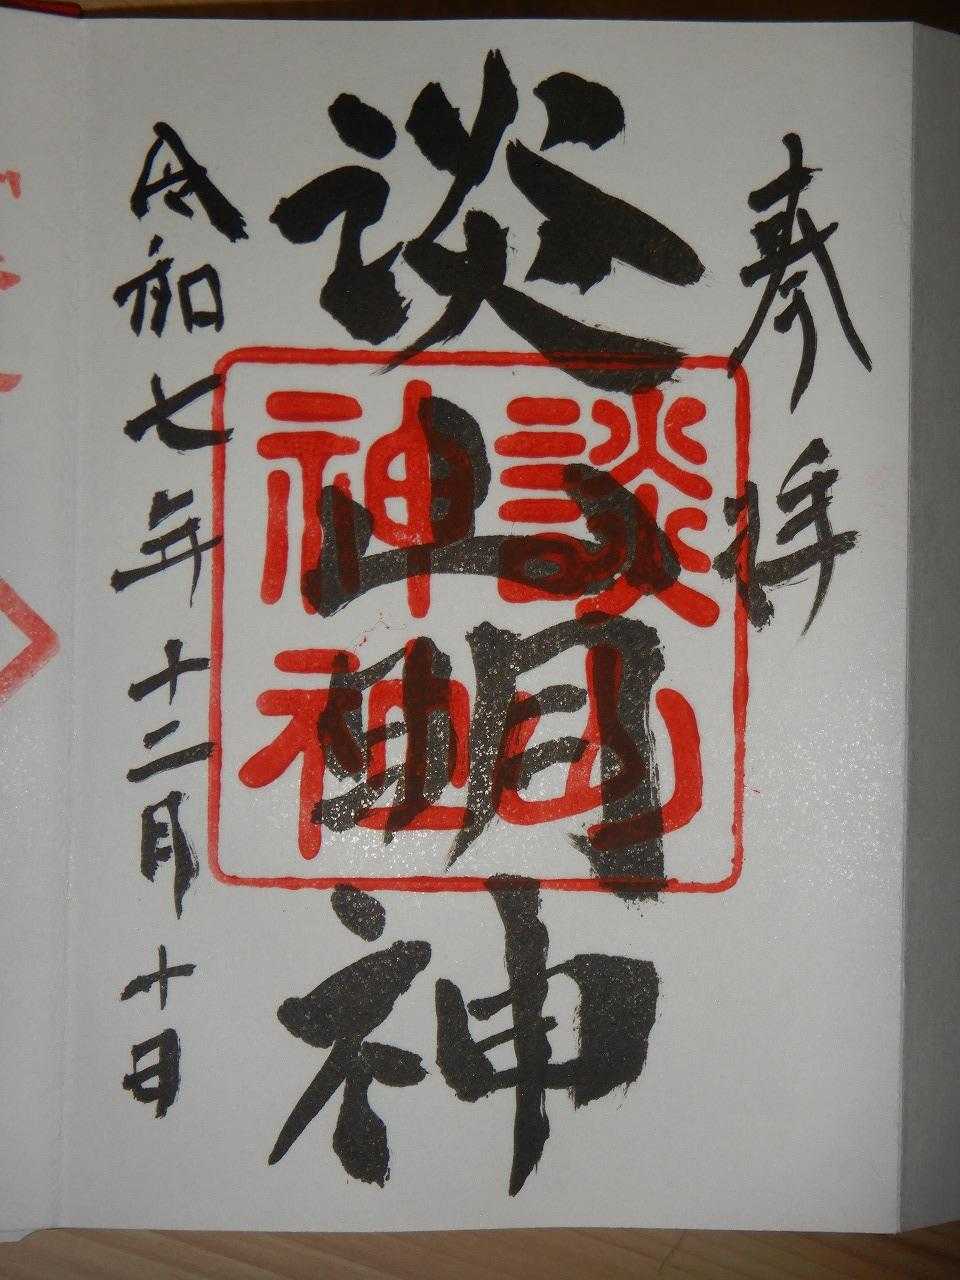 奉拝
談山明神
談山
神社
令和七年十二月十日